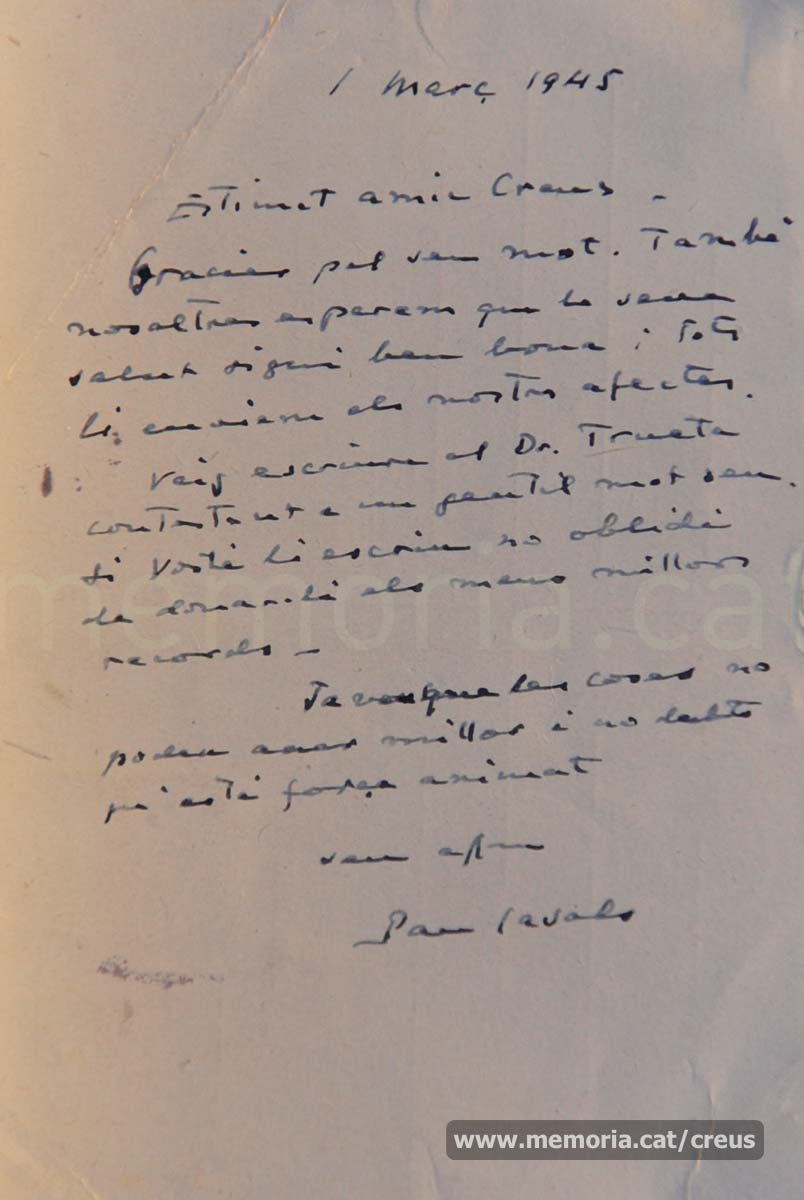 1 Març 1945
Estimat amic Creus -
Gracies pel seu mot. També
nosaltres esperem que la seva
salut sigui ben bona i tots
li enviem els nostres afectes.
Vaig escriure al Dr. Trueta
contestant a un gentil mot seu.
Si Vostè li escriu no oblidi
de donar-li els meus millors
records -
Ja veu que les coses no
poden anar millor i no dubto
qu'està força animat
seu afm
Pau Casals
memoria.cat
www.memoria.cat/creus